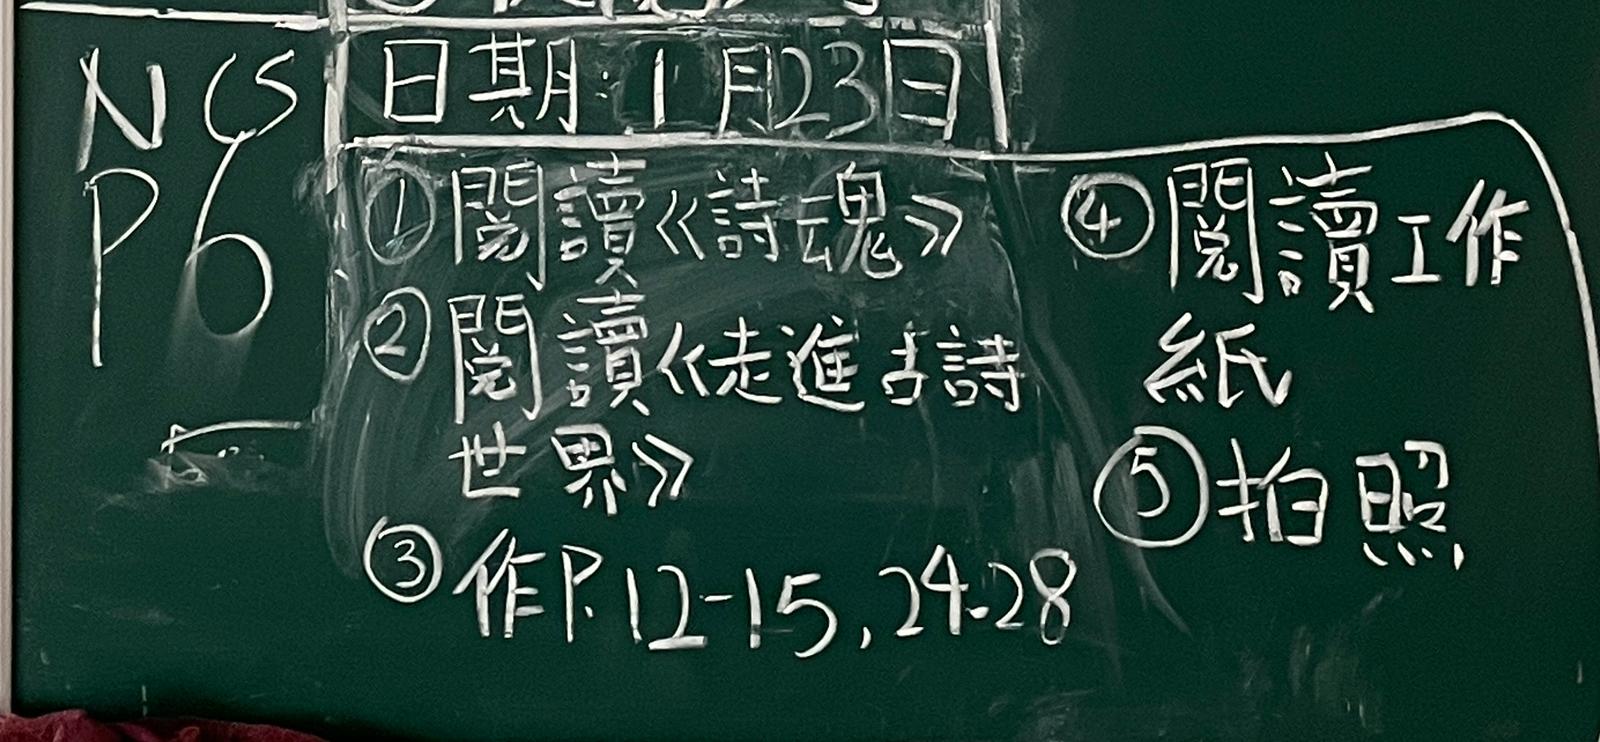 NCS
P6
日期:1月23日
①閱讀《詩魂》
②閱讀《走進古詩
世界》
③作P.12-15,24-28
④閱讀工作
紙
⑤拍照